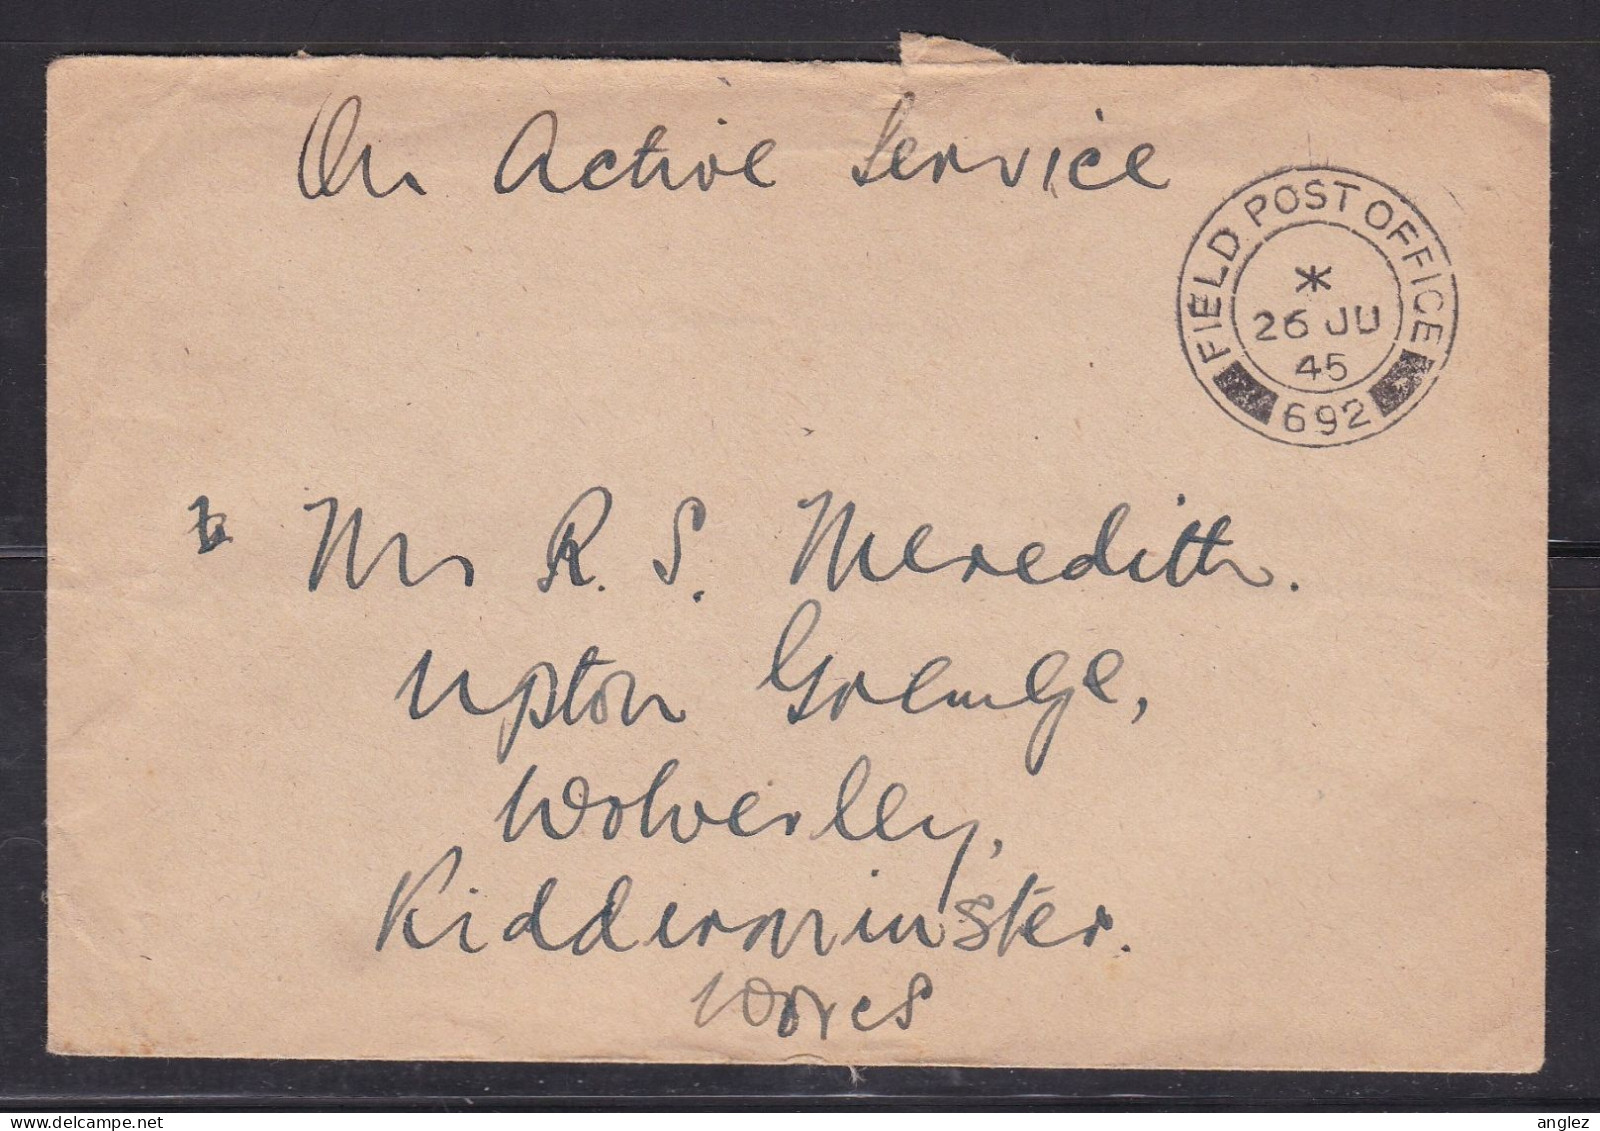 On Active Service
FIELD POST OFFICE
*
26 JU
45
692
Mr R. S. Meredith.
Upton Grange,
Wolverley,
Kidderminster.
Worcs
anglez